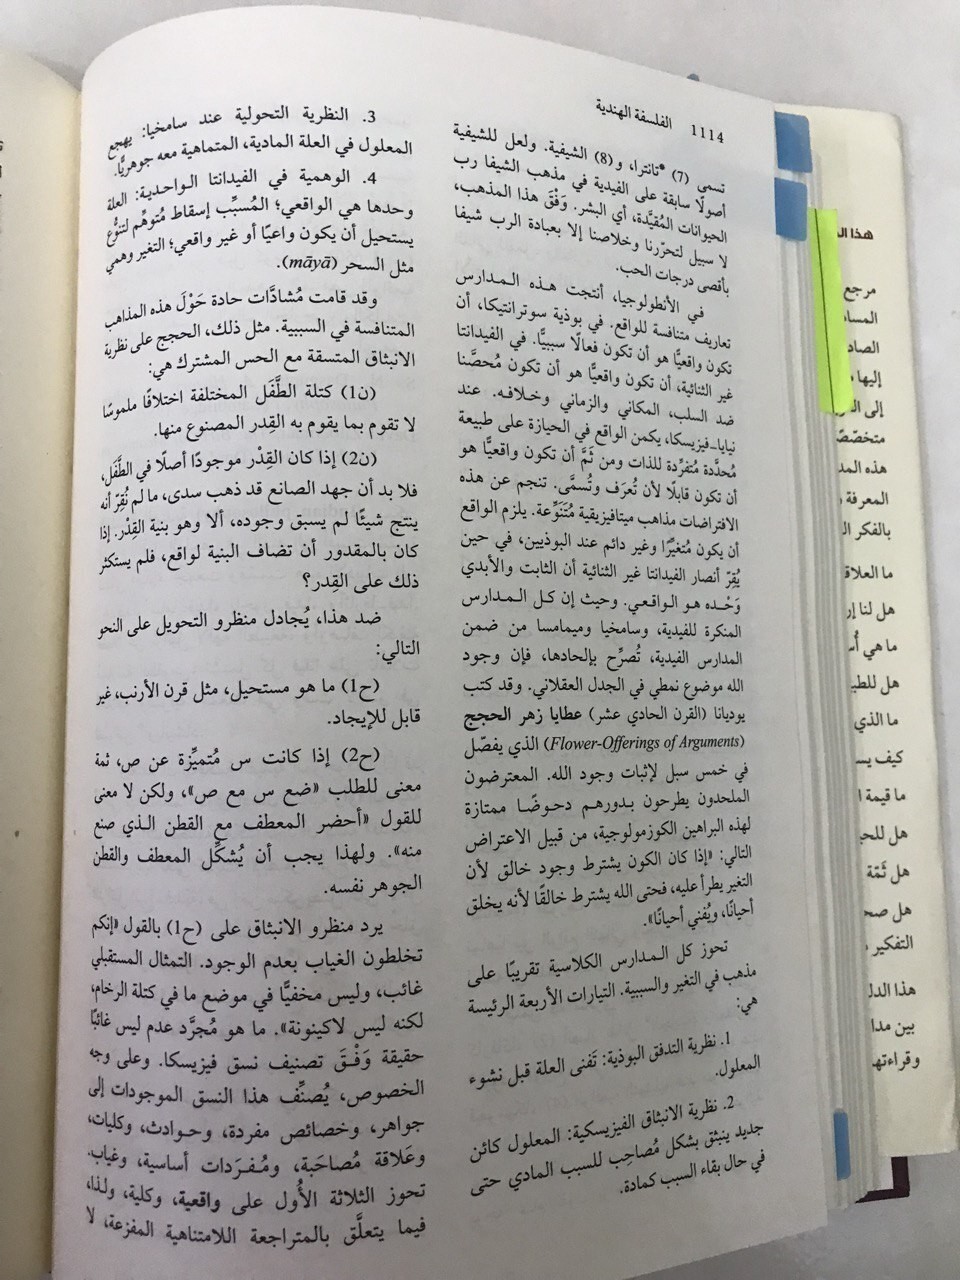 1114 الفلسفة الهندية
تسمى (7) *تانترا، و(8) الشيفية. ولعل للشيفية
أصولًا سابقة على الفيدية في مذهب الشيفا رب
الحيوانات المُقيَّدة، أي البشر. وَفْقَ هذا المذهب،
لا سبيل لتحرّرنا وخلاصنا إلا بعبادة الرب شيفا
بأقصى درجات الحب.
في الأنطولوجيا، أنتجت هـذه الـمـدارس
تعاريف متنافسة للواقع. في بوذية سوترانتيكا، أن
تكون واقعيًّا هو أن تكون فعالًا سببيًّا. في الفيدانتا
غير الثنائية، أن تكون واقعيًّا هو أن تكون مُحصَّنا
ضد السلب، المكاني والزماني وخـلافـه. عند
نيايا-فيزيسكا، يكمن الواقع في الحيازة على طبيعة
مُحدَّدة مُتفرِّدة للذات ومن ثَمَّ أن تكون واقعيًّا هو
أن تكون قابلًا لأن تُعرَف وتُسمَّى. تنجم عن هذه
الافتراضات مذاهب ميتافيزيقية مُتَنَوِّعة. يلزم الواقع
أن يكون مُتغيِّرًا وغير دائم عند البوذيين، في حين
يُقِرّ أنصار الفيدانتا غير الثنائية أن الثابت والأبدي
وَحْـده هـو الـواقـعـي. وحيث إن كـل الـمـدارس
المنكرة للفيدية، وسامخيا وميمامسا من ضمن
المدارس الفيدية، تُصرِّح بإلحادها، فإن وجود
الله موضوع نمطي في الجدل العقلاني. وقد كتب
يوديانا (القرن الحادي عشر) عطايا زهر الحجج
(Flower-Offerings of Arguments) الذي يفصّل
في خمس سبل لإثبات وجود الله. المعترضون
الملحدون يطرحون بـدورهـم دحـوضًـا ممتازة
لهذه البراهين الكوزمولوجية، من قبيل الاعتراض
التالي: «إذا كان الكون يشترط وجود خالق لأن
التغير يطرأ عليه، فحتى الله يشترط خالقًا لأنه يخلق
أحيانًا، ويُفني أحيانًا».
تحوز كل المـدارس الكلاسية تقريبًا على
مذهب في التغير والسببية. التيارات الأربعة الرئيسة
هي:
1. نظرية التدفق البوذية: تَفنى العلة قبل نشوء
المعلول.
2. نظرية الانبثاق الفيزيسكية: المعلول كائن
جديد ينبثق بشكل مُصاحِب للسبب المادي حتى
في حال بقاء السبب كمادة.
3. النظرية التحولية عند سامخيا: يهجع
المعلول في العلة المادية، المتماهية معه جوهريًّا.
4. الوهمية في الفيدانتا الـواحـديـة: العلة
وحدها هي الواقعي؛ المُسبِّب إسقاط مُتوهِّم لتنوُّع
يستحيل أن يكون واعيًا أو غير واقعي؛ التغير وهمي
مثل السحر (māyā).
وقد قامت مُشادَّات حادة حَوْلَ هذه المذاهب
المتنافسة في السببية. مثل ذلك، الحجج على نظرية
الانبثاق المتسقة مع الحس المشترك هي:
(ن1) كتلة الطَّفَل المختلفة اختلافًا ملموسًا
لا تقوم بما يقوم به القِدر المصنوع منها.
(ن2) إذا كان القِدْر موجودًا أصلًا في الطَّفَل،
فلا بد أن جهد الصانع قد ذهب سدى، ما لم نُقِرّ أنه
ينتج شيئًا لم يسبق وجوده، ألا وهو بنية القِدْر. إذا
كان بالمقدور أن تضاف البنية لواقع، فلم يستكثر
ذلك على القِدر؟
ضد هذا، يُجادل منظرو التحويل على النحو
التالي:
(ح1) ما هو مستحيل، مثل قرن الأرنب، غير
قابل للإيجاد.
(ح2) إذا كانت س مُتميِّزة عن ص، ثمة
معنى للطلب «ضع س مع ص»، ولكن لا معنى
للقول «أحضر المعطف مع القطن الـذي صنع
منه». ولهذا يجب أن يُشكِّل المعطف والقطن
الجوهر نفسه.
يرد منظرو الانبثاق على (ح1) بالقول «إنكم
تخلطون الغياب بعدم الوجود. التمثال المستقبلي
غائب، وليس مخفيًّا في موضع ما في كتلة الرخام،
لكنه ليس لاكينونة». ما هو مُجرَّد عدم ليس غائبًا
حقيقة وَفْـقَ تصنيف نسق فيزسكا. وعلى وجه
الخصوص، يُصنِّف هذا النسق الموجودات إلى
جواهر، وخصائص مفردة، وحـوادث، وكليات،
وعَلاقة مُصاحَبة، ومُـفـرَدات أساسية، وغياب.
تحوز الثلاثة الأُول على واقعية، وكلية، ولذا،
فيما يتعلَّق بالمتراجعة اللامتناهية المفزعة، لا
هذا
مرجع
إليها
متخصّص
هذه
المعرفة
بالفكر
ما
هل لنا
ما هي
هل
ما الذي
كيف
ما قيمة
هل
هل ثَمّة
هل
التفكير
هذا
بين